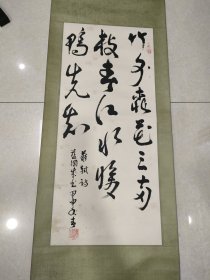 竹外桃花三两
枝春江水暖
鸭先知
苏轼诗
甲申年春